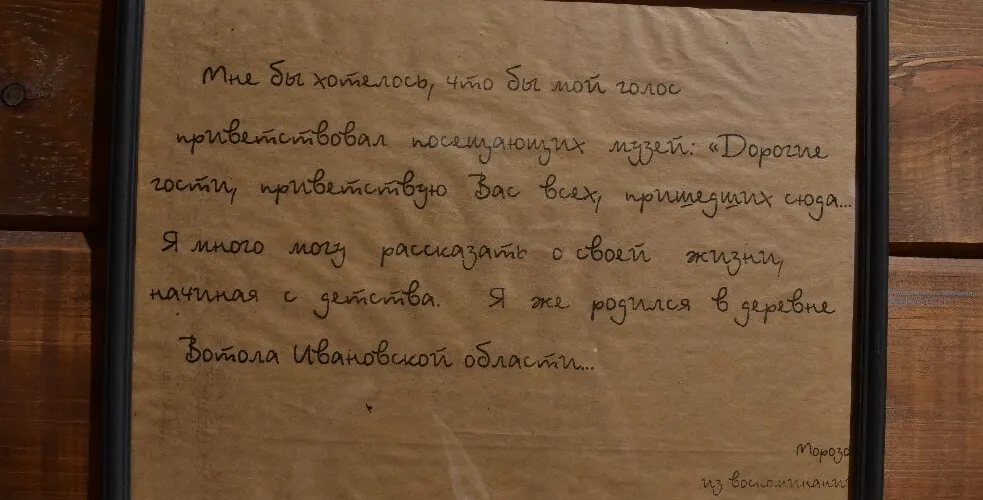 Мне бы хотелось, что бы мой голос
приветствовал посещающих музей: «Дорогие
гости, приветствую Вас всех, пришедших сюда...
Я много могу рассказать о своей жизни,
начиная с детства. Я же родился в деревне
Вотола Ивановской области...
Морозо
из воспоминани